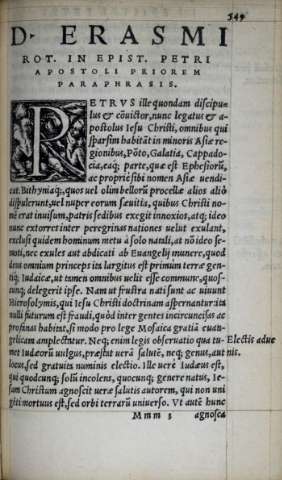 349
D. ERASMI
ROT. IN EPIST. PETRI
APOSTOLI PRIOREM
PARAPHRASIS.
PETRVS ille quondam discipu-
lus & cōuictor, nunc legatus & a-
postolus Iesu Christi, omnibus qui
sparsim habitāt in minoris Asiæ re-
gionibus, Pōto, Galatia, Cappado-
cia, eaq; parte, quæ est Ephesiorū,
ac proprie sibi nomen Asiæ uendi-
cat. Bithyniaq;, quos uel olim bellorū procellæ alios aliò
dispulerunt, uel nuper eorum sæuitia, quibus Christi no-
mē erat inuisum, patrijs sedibus exegit innoxios, atq; ideo
nunc extorres inter peregrinas nationes uelut exulant,
exclusi quidem hominum metu à solo natali, at nō ideo se-
moti, nec exules aut abdicati ab Euangelij munere, quod
deus omnium princeps ita largitus est primùm terræ gen-
tiq; Iudaicæ, ut tamen omnibus uelit esse commune, quos-
cunq; delegerit ipse. Nam ut frustra nati sunt ac uiuunt
Hierosolymis, qui Iesu Christi doctrinam aspernantur ita
nulli futurum est fraudi, quòd inter gentes incircuncisas ac
profanas habitēt, si modo pro lege Mosaica gratiā euan-
gelicam amplectātur. Neq; enim legis obseruatio qua tu-
Electis adue
mes Iudæorū uulgus, præstat uerā salutē, neq; genus, aut
nis.
locus, sed gratuita numinis electio. Ille uerè Iudæus est,
qui quodcunq; solū incolens, quocunq; genere natus, Ie-
sum Christum agnoscit ueræ salutis autorem, qui non uni
gēti mortuus est, sed orbi terrarū uniuerso. Vt autē hunc
Mmm 3
agnosca